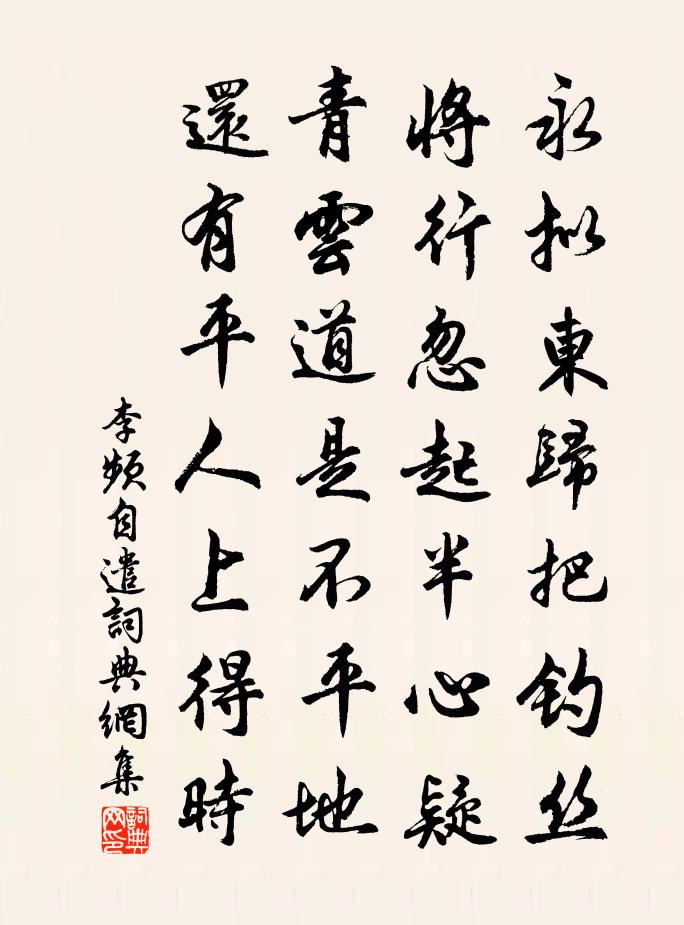 永拟東歸把釣丝
將行忽起半心疑
青雲道是不平地
還有平人上得時
李頻自遣詞典網集
詞典網印